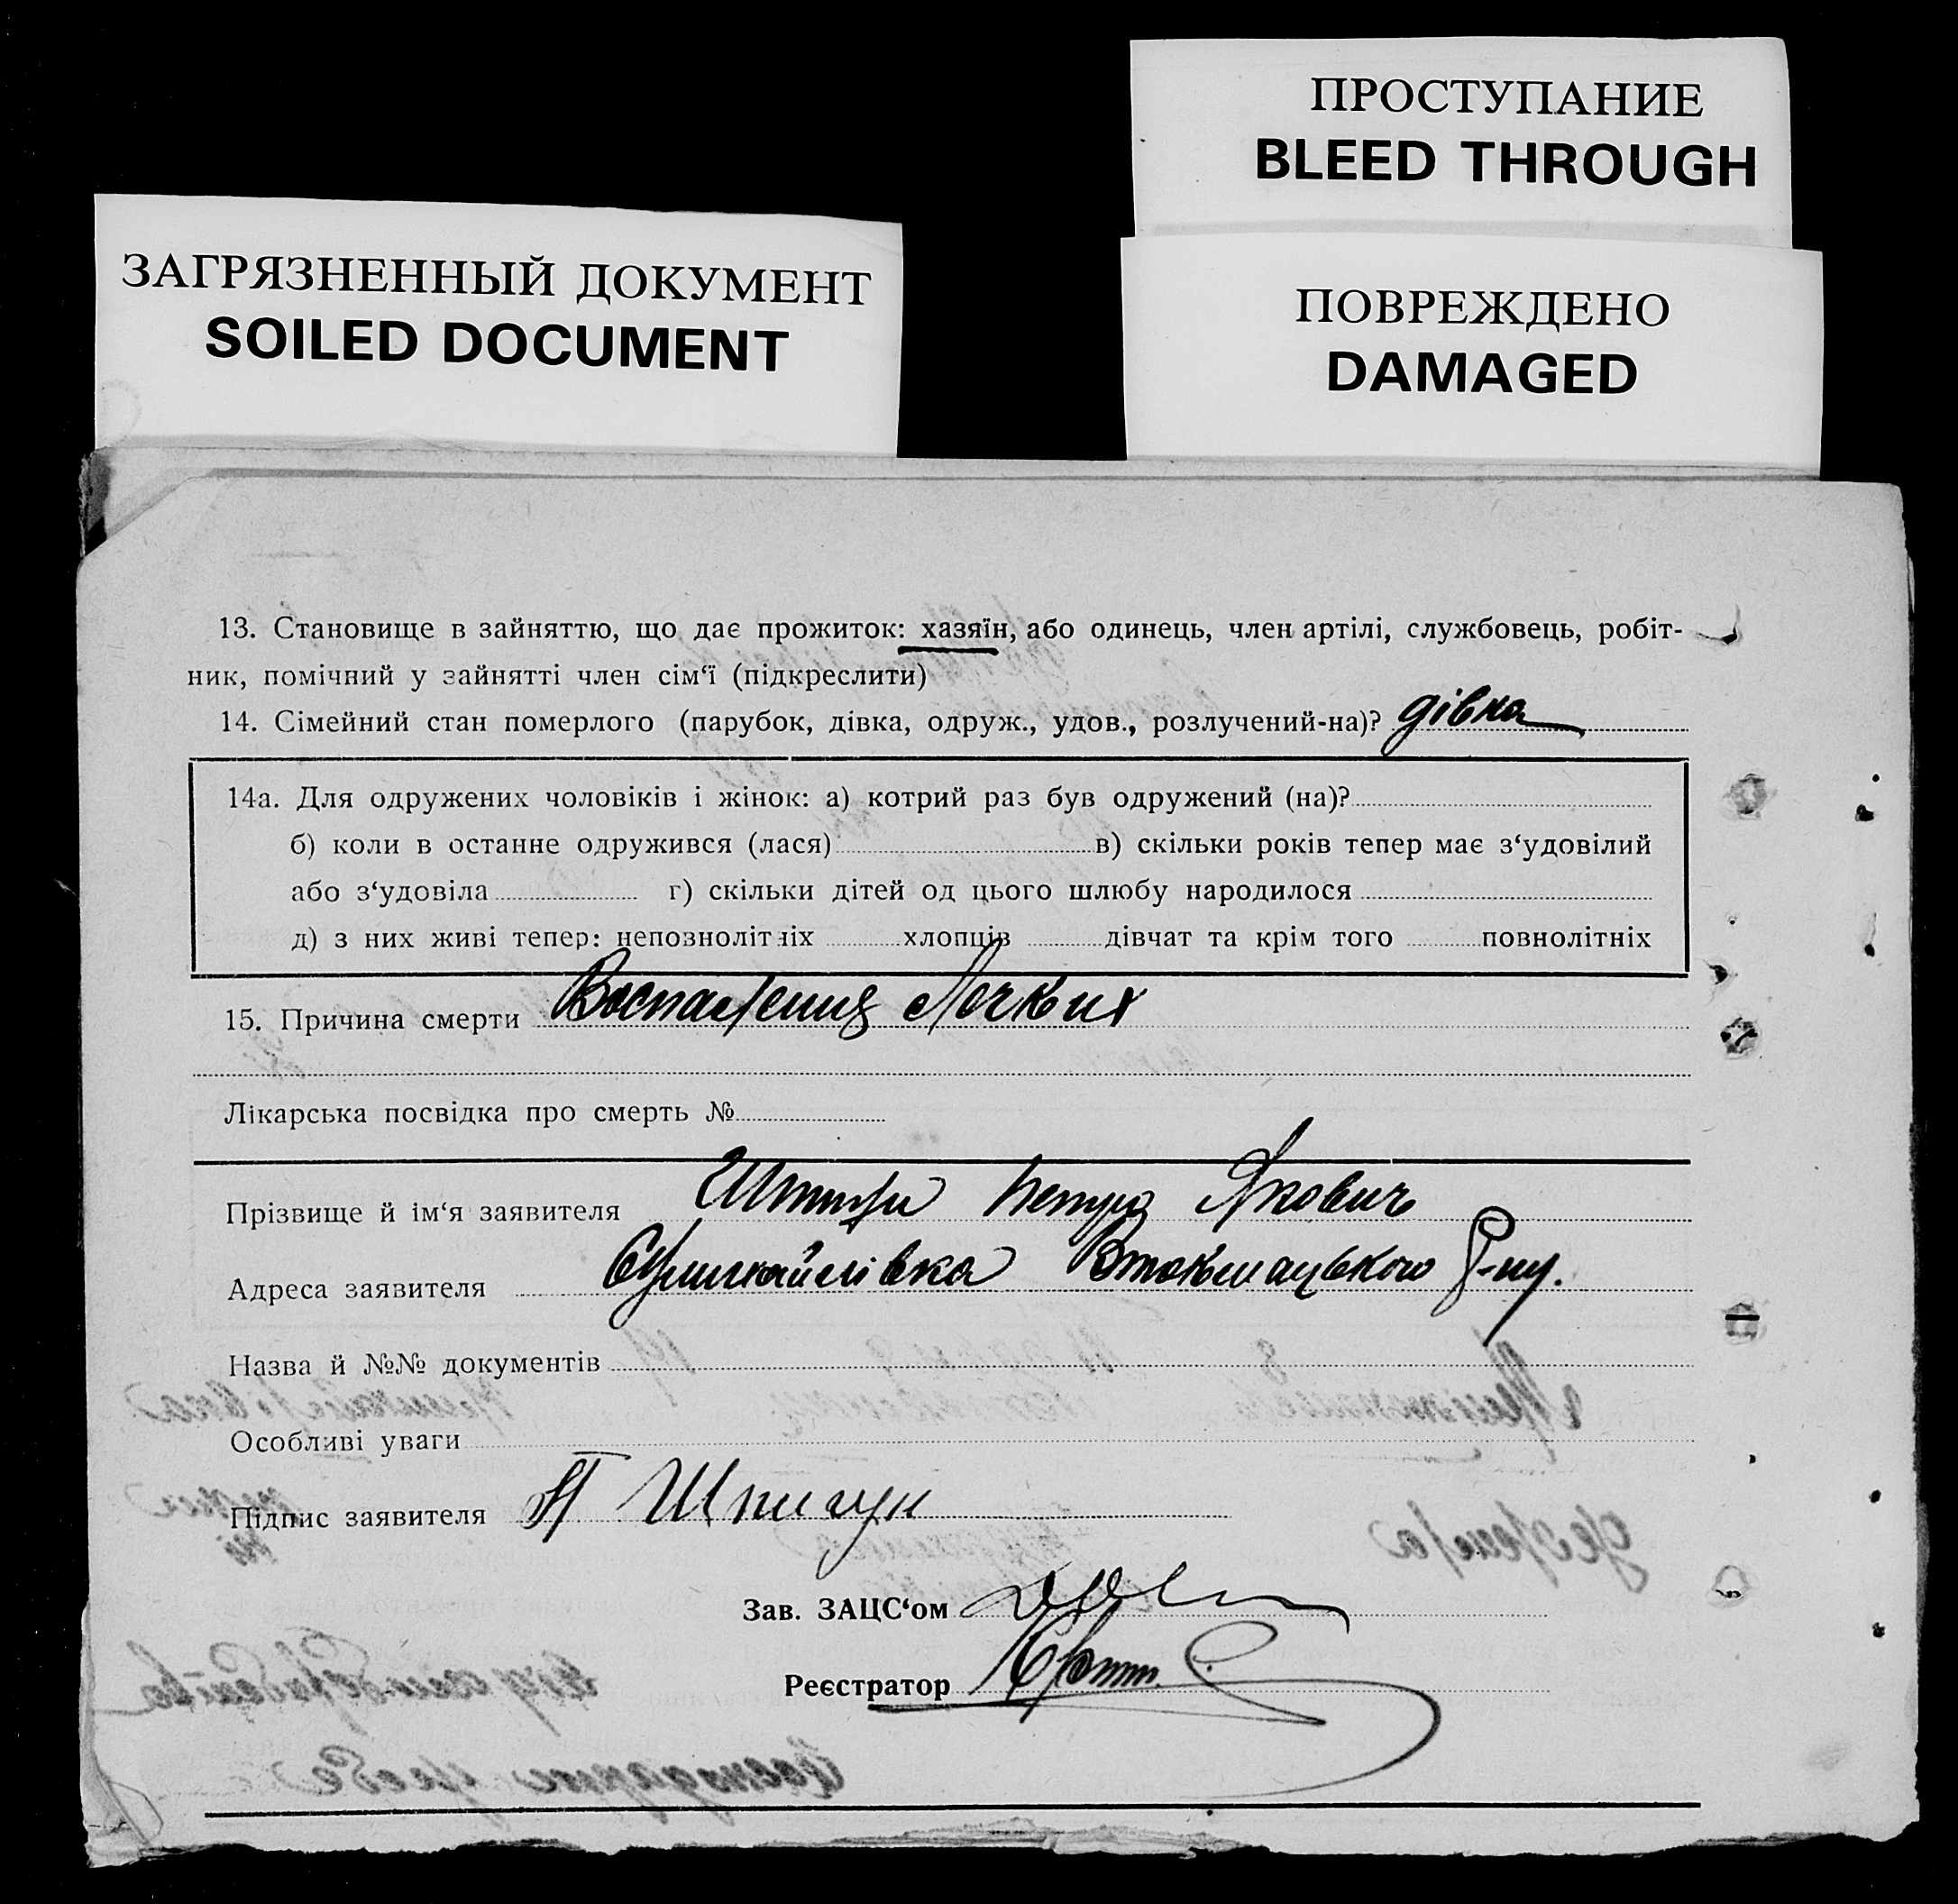 ПРОСТУПАНИЕ
BLEED THROUGH
ЗАГРЯЗНЕННЫЙ ДОКУМЕНТ
SOILED DOCUMENT
ПОВРЕЖДЕНО
DAMAGED
13. Становище в зайняттю, що дає прожиток: хазяїн, або одинець, член артілі, службовець, робіт-
ник, помічний у зайнятті член сім‘ї (підкреслити)
14. Сімейний стан померлого (парубок, дівка, одруж., удов., розлучений-на)? дівка
14а. Для одружених чоловіків і жінок: а) котрий раз був одружений (на)?
б) коли в останне одружився (лася) в) скільки років тепер має з‘удовілий
або з‘удовіла г) скільки дітей од цього шлюбу народилося
д) з них живі тепер: неповнолітніх хлопців дівчат та крім того повнолітніх
15. Причина смерти Воспаления
Лікарська посвідка про смерть №
Прізвище й ім‘я заявителя Петро Якович
Адреса заявителя Втокмацького Р-ну.
Назва й №№ документів
Особливі уваги
Підпис заявителя П Шпигун
Зав. ЗАЦС‘ом
Реєстратор